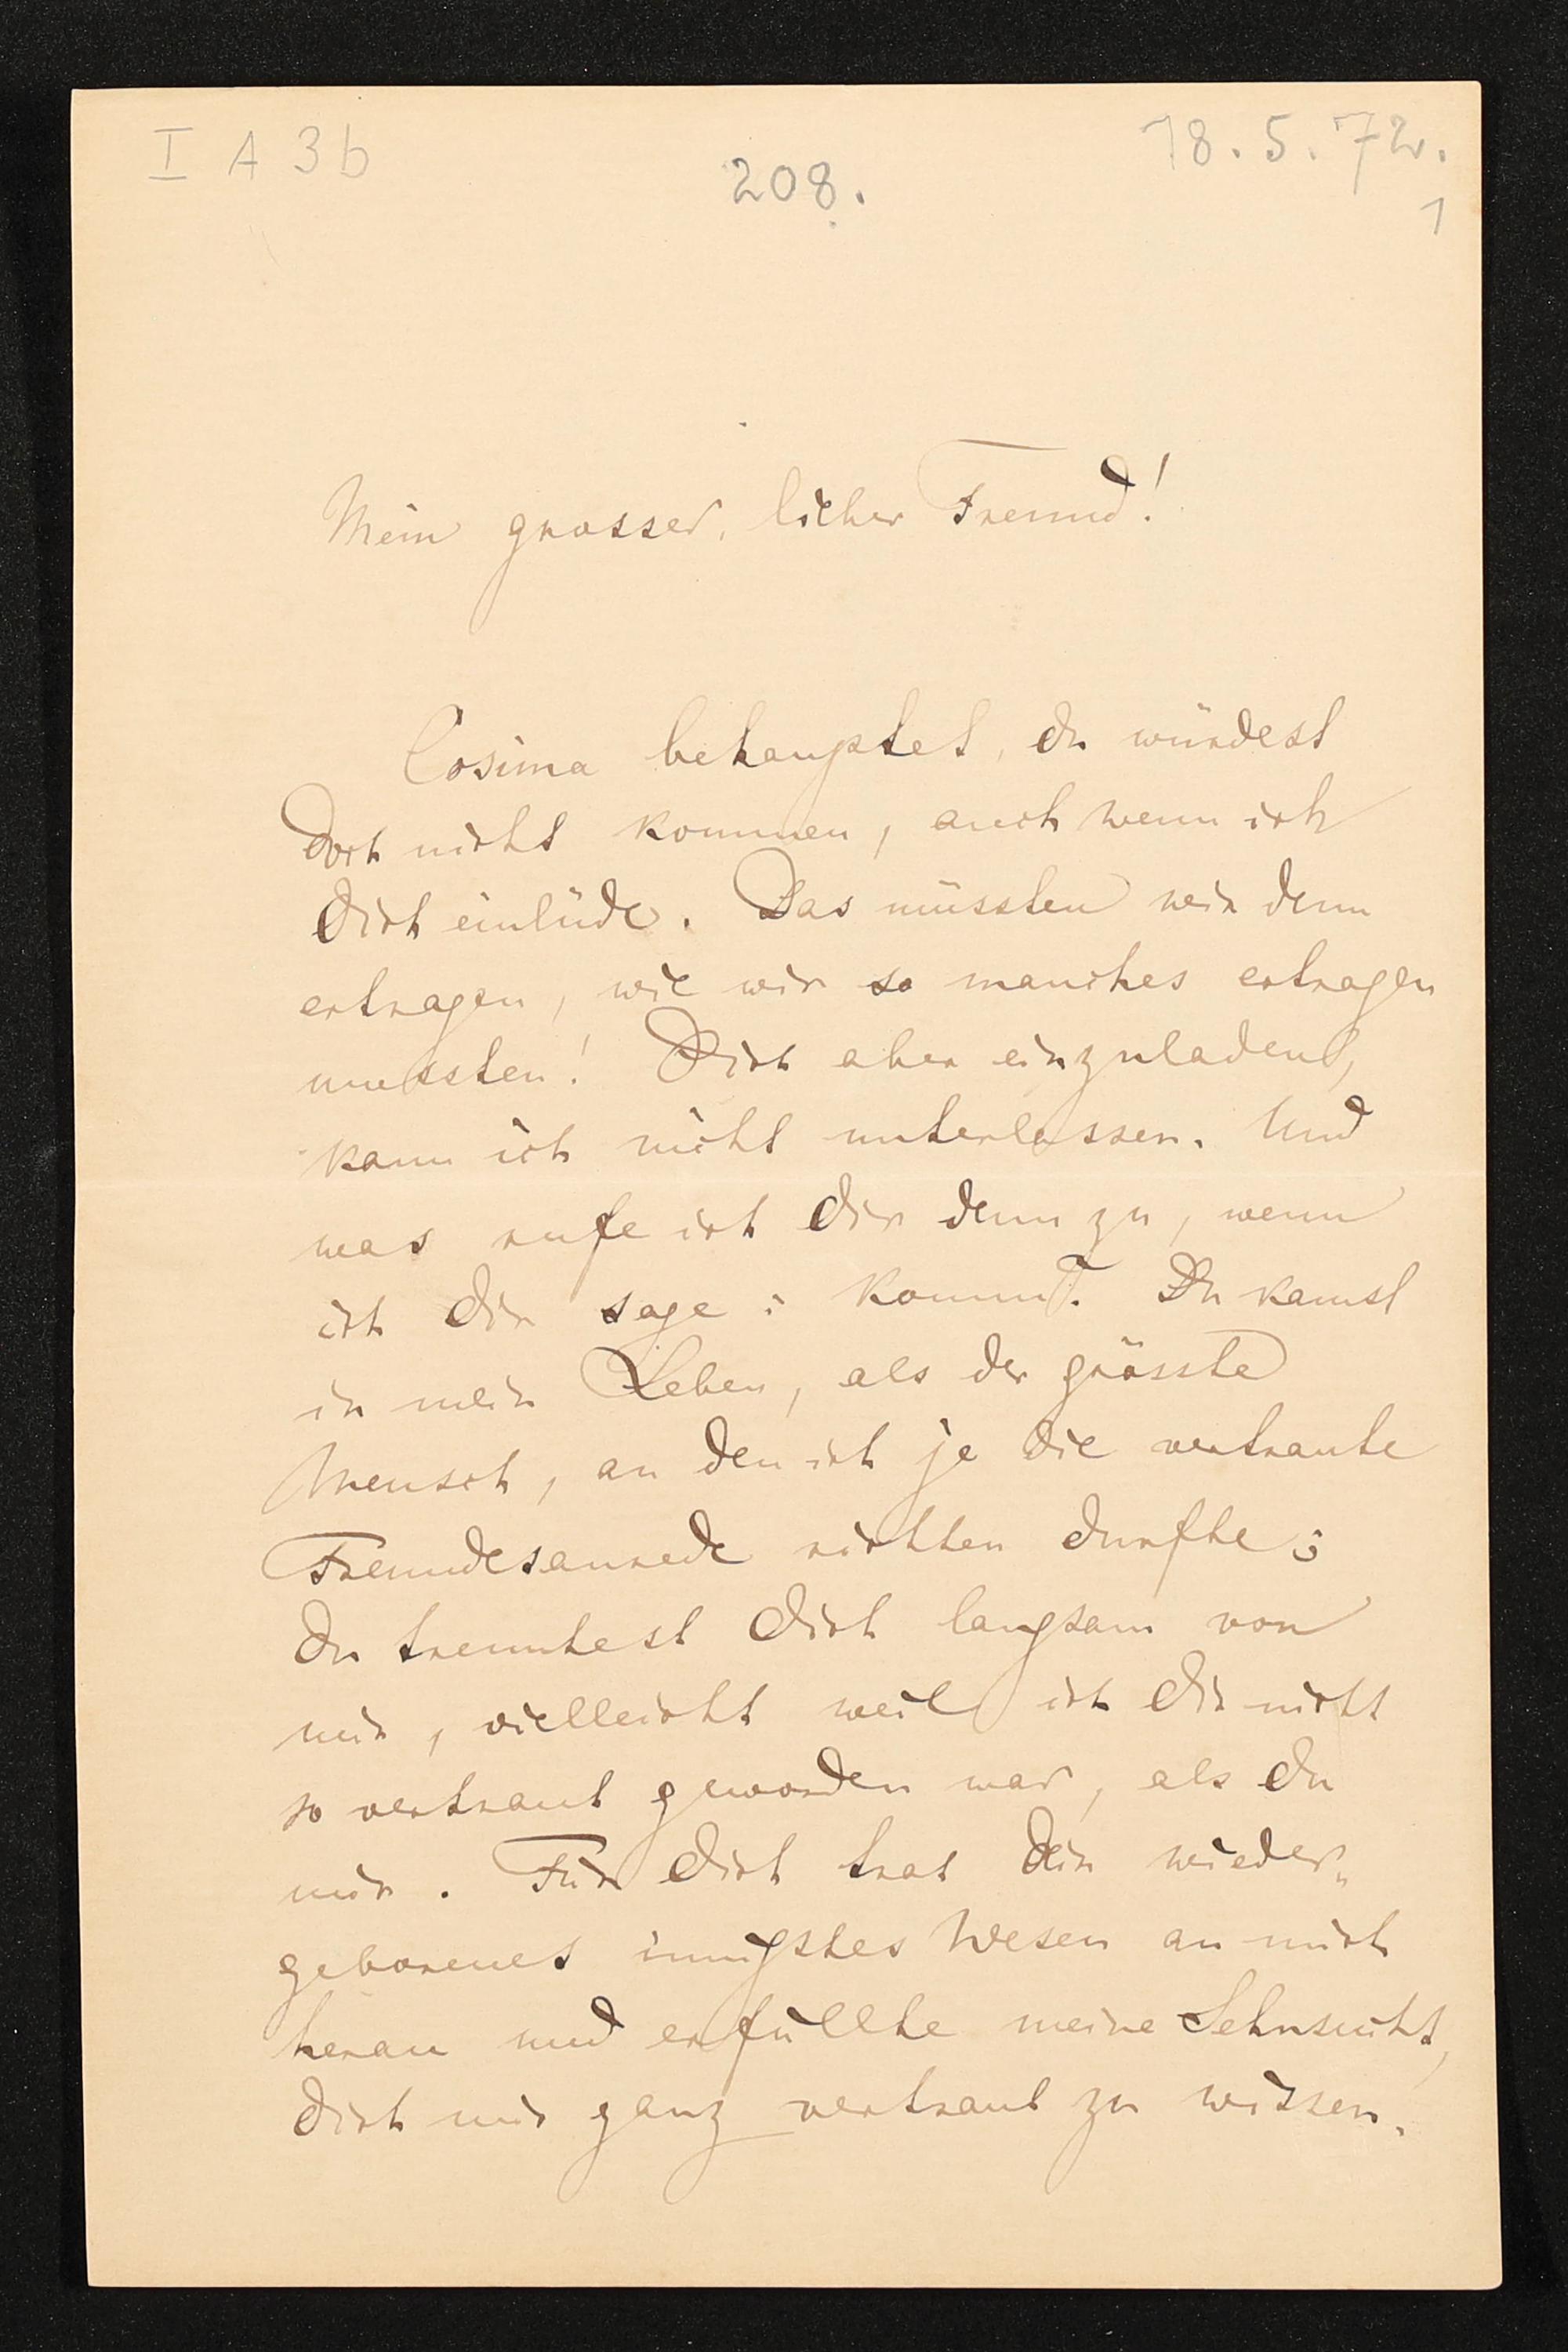 I A 3b
208.
18.5.72.
1
Mein grosser, lieber Freund!
Cosima behauptet, du würdest
doch nicht kommen, auch wenn ich
dich einlüde. Das müssten wir denn
ertragen, wie wir so manches ertragen
mussten! Dich aber einzuladen,
kann ich nicht unterlassen. Und
was rufe ich dir denn zu, wenn
ich dir sage: komm? Du kamst
in mein Leben, als der grösste
Mensch, an den ich je die vertraute
Freundesanrede richten durfte;
du trenntest dich langsam von
mir, vielleicht weil ich dir nicht
so vertraut geworden war, als du
mir. Für dich trat dein wieder„
geborenes innigstes Wesen an mich
heran und erfüllte meine Sehnsucht,
dich mir ganz vertraut zu wissen.